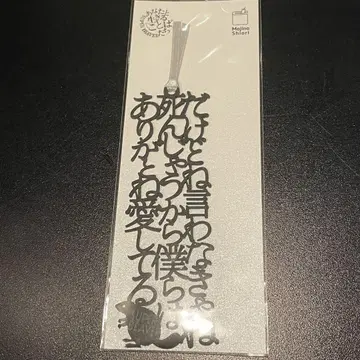 だけどね言わなきゃね
死んじゃうから僕らは
ありがとね愛してる
Mojino
Shiori